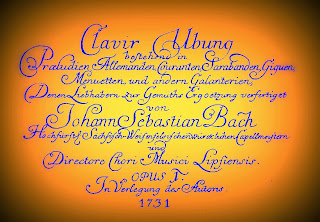 Clavir Ubung
bestehend in
Præludien, Allemanden, Couranten, Sarabanden, Giquen,
Menuetten, und andern Galanterien,
Denen Liebhabern zur Gemüths Ergoetzung verfertiget
von
Johann Sebastian Bach
Hochfürstl Sächsisch-Weisenfelsischen würcklichen Capellmeistern
und
Directore Chori Musici Lipsiensis.
OPUS I.
In Verlegung des Autoris.
1731